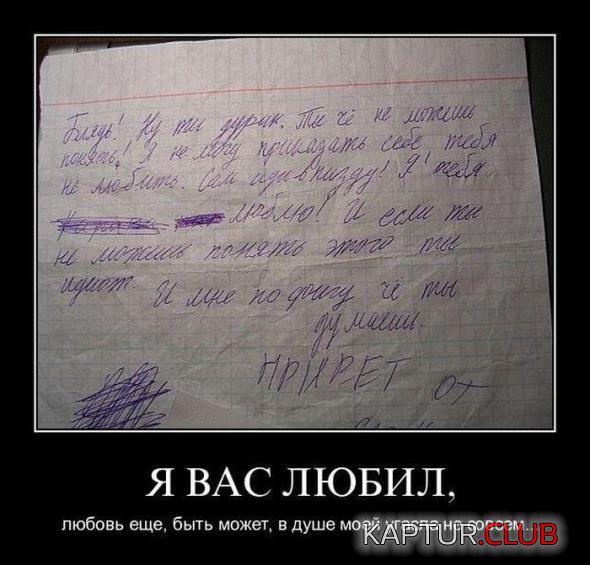 Блядь! Ну ты дурак. Ты чё не можешь
понять! Я не могу приказать себе тебя
не любить. Сам иди в пизду! Я тебя
люблю! И если ты
не можешь понять этого ты
идиот. И мне по фигу чё ты
думаешь.
ПРИВЕТ от
Я ВАС ЛЮБИЛ,
любовь еще, быть может, в душе моей угасла не совсем...
KAPTUR.CLUB